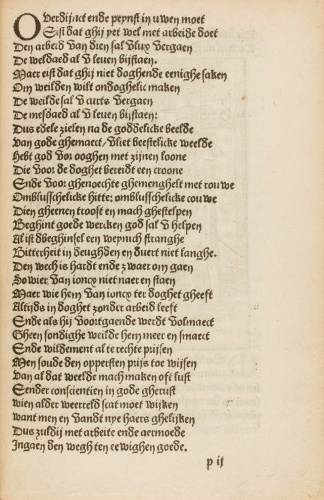 Overdinct ende peynst in uwen moet
Eist dat ghij yet wel met arbeide doet
Den arbeid van dien sal vlux vergaen
De weldaed al v leuen bijstaen.
Maer eist dat ghij niet doghende eenighe saken
Om wilden wilt ondoghelic maken
De weilde sal v curts vergaen
De mesdaed al v leuen bijstaen:
Dus edele zielen na de goddelicke beelde
Van gode ghemaect/ vliet beestelicke weelde
Hebt god voor ooghen met zijnen loone
Die voor de doghet bereidt een croone
Ende voor ghenoechte ghemenghelt met rouwe
Ombluschelicke hitte: ombluschelicke couwe
Dien gheenen troost en mach ghestelpen
Beghint goede wercken god sal v helpen
Al ist dbeghinsel een weynich stranghe
Bitterheit in deughden en duert niet langhe.
Den wech is hardt ende zwaer om gaen
So wier van ioncx niet naer en staen
Maer wie hem van ioncx ter doghet gheeft
Altijds in doghet zonder arbeid leeft
Ende als hij voortgaende werdt volmaect
Gheen sondighe weilde hem meer en smaect
Ende wildemen al te rechte prijsen
Men soude den oppersten prijs toe wijsen
Van al dat weelde mach maken oft lust
Eender conscientien in gode gherust
wien alder weereld scat moet wijken
want men en vandt nye haers ghelijken
Dus zuldij met arbeite ende aermoede
Ingaen den wegh ten eewighen goede.
p ij